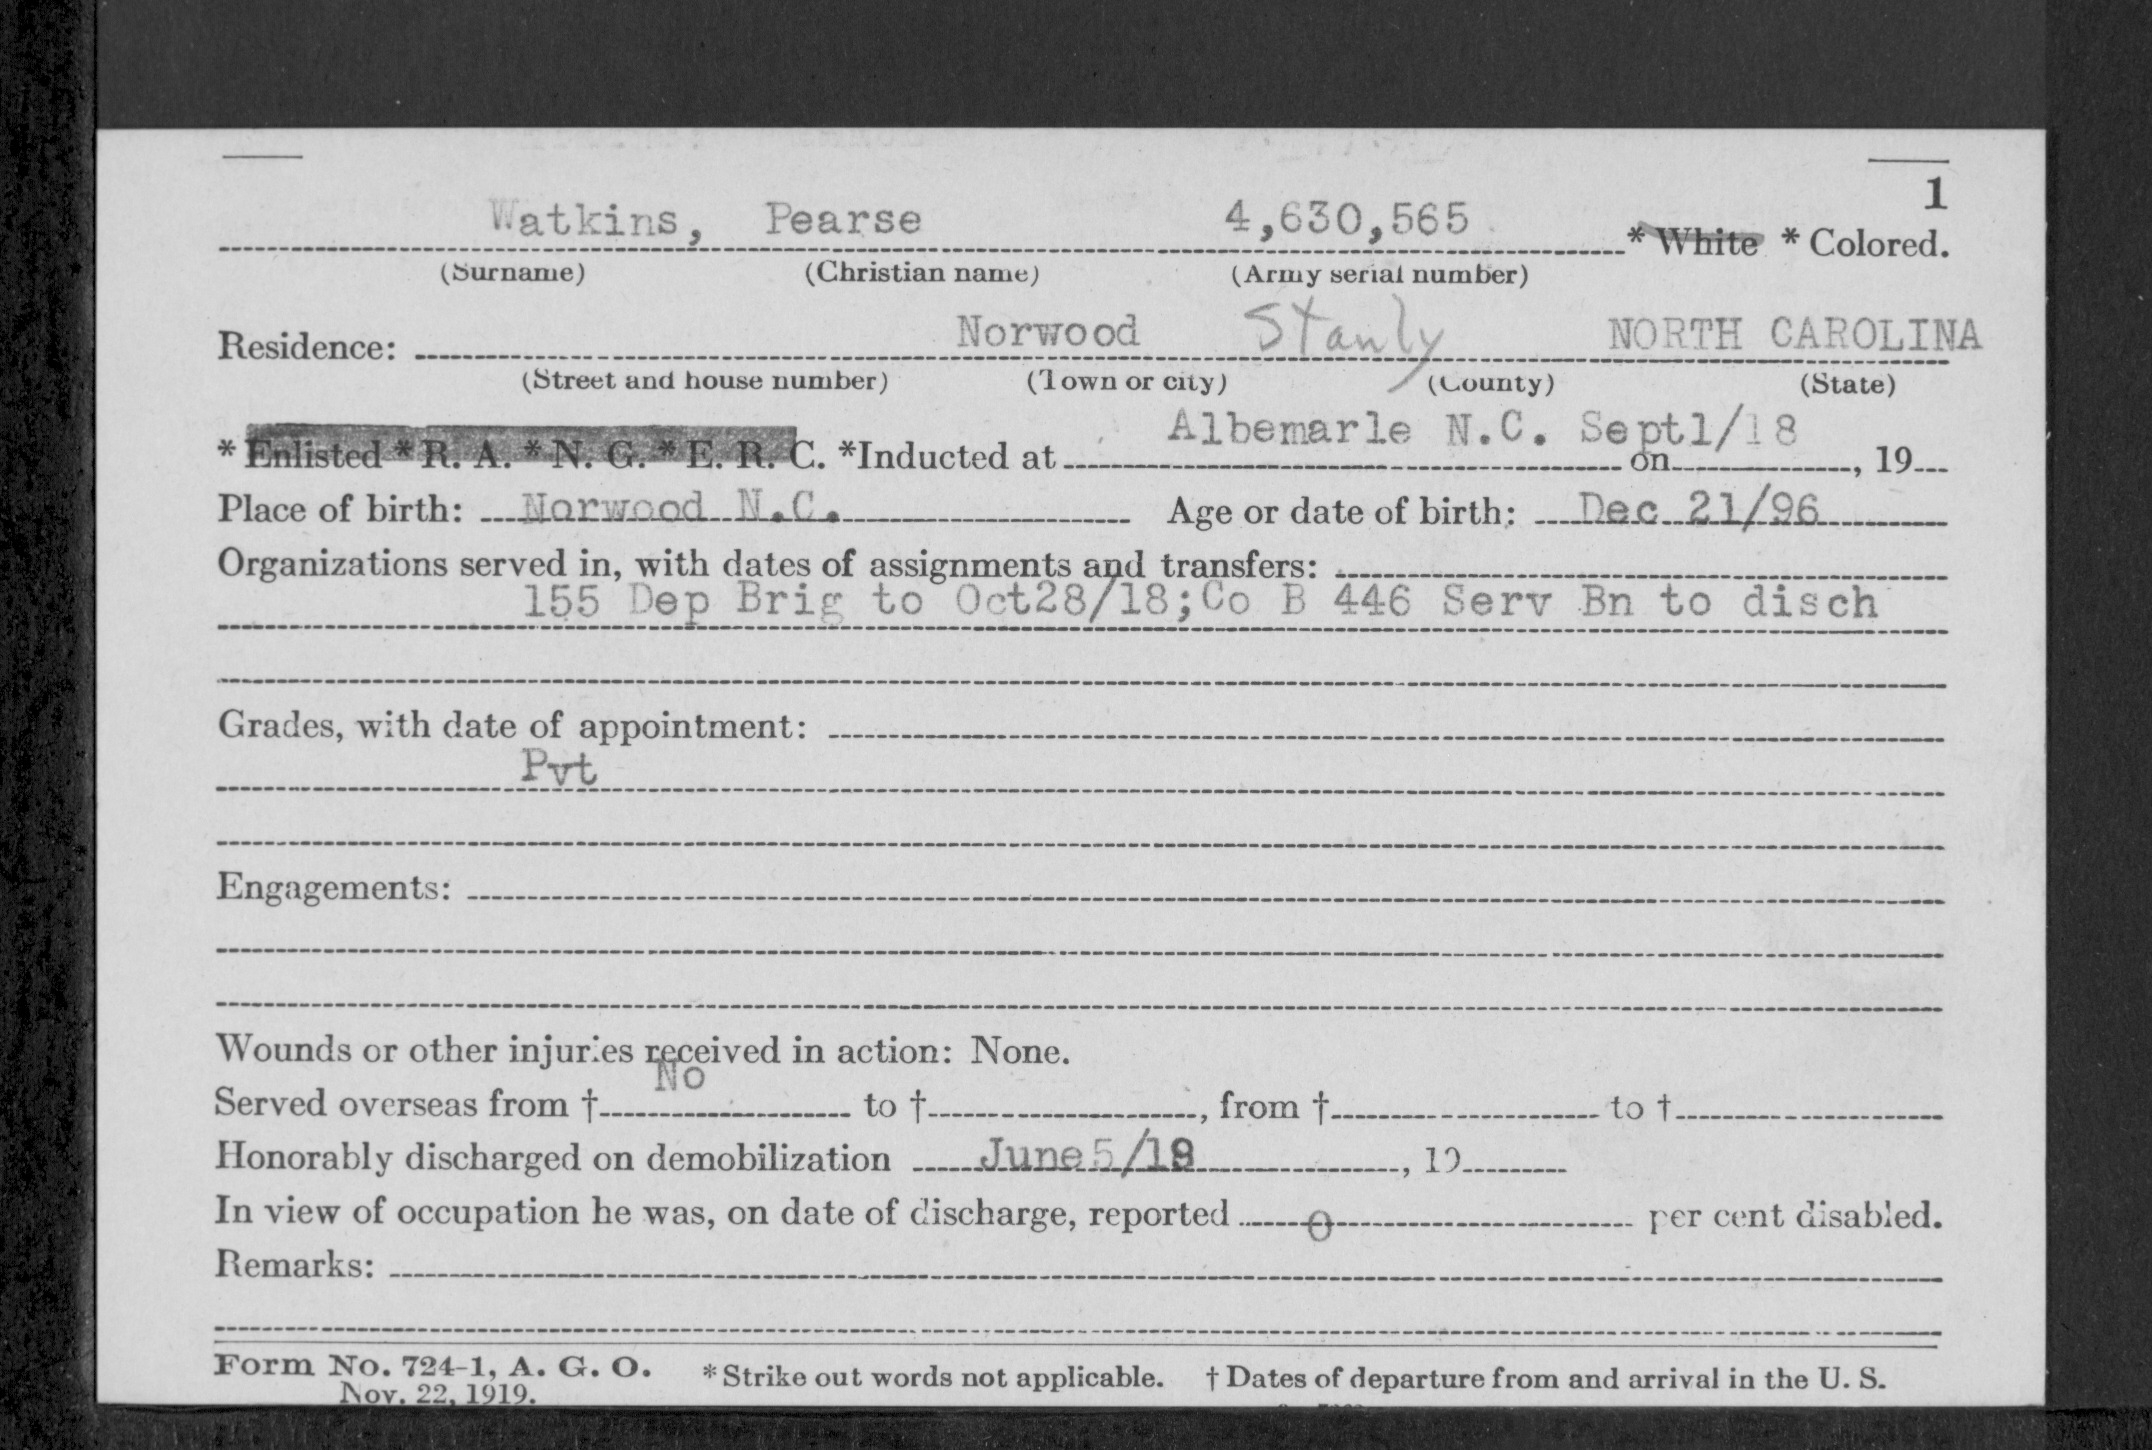 1
Watkins, Pearse 4,630,565 * White * Colored.
(Surname) (Christian name) (Army serial number)
Residence: Norwood Stanly NORTH CAROLINA
(Street and house number) (Town or city) (County) (State)
* Enlisted * R. A. * N. G. * E. R. C. *Inducted at Albemarle N.C. on Sept1/18, 19
Place of birth: Norwood N.C. Age or date of birth: Dec 21/96
Organizations served in, with dates of assignments and transfers:
155 Dep Brig to Oct28/18;Co B 446 Serv Bn to disch
Grades, with date of appointment:
Pvt
Engagements:
Wounds or other injuries received in action: None.
Served overseas from † No to †, from † to †
Honorably discharged on demobilization June 5/19, 19
In view of occupation he was, on date of discharge, reported 0 per cent disabled.
Remarks:
Form No. 724-1, A. G. O. * Strike out words not applicable. † Dates of departure from and arrival in the U. S.
Nov. 22, 1919.